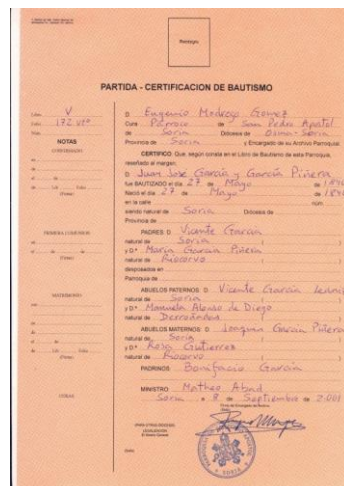 Reintegro
PARTIDA - CERTIFICACION DE BAUTISMO
Libro V
Folio 172 vto
Núm.
NOTAS
CONFIRMADO
D. Eugenio Modrego Gomez
Cura Párroco de San Pedro Apostol
de Soria Diócesis de Osma-Soria
Provincia de Soria y Encargado de su Archivo Parroquial
CERTIFICO: Que, según consta en el Libro de Bautismo de esta Parroquia,
reseñado al margen,
D. Juan José García y García Piñera
fue BAUTIZADO el día 27 de Mayo de
Nació el 27 de Mayo de
en la calle núm.
siendo natural de Soria Diócesis de
Provincia de
PRIMERA COMUNION
PADRES: D. Vicente García
natural de Soria
y D.ª María García Piñera
natural de Riocorvo
desposados en
Parroquia de
MATRIMONIO
ABUELOS PATERNOS: D. Vicente García
natural de Soria
y D.ª Manuela Alonso de Diego
natural de
ABUELOS MATERNOS: D. Joaquin García Piñera
natural de Soria
y D.ª Rosa Gutierrez
natural de Riocorvo
PADRINOS Bonifacio García
OTRAS
MINISTRO Matheo Abad
Soria a 8 de Septiembre de 2.001